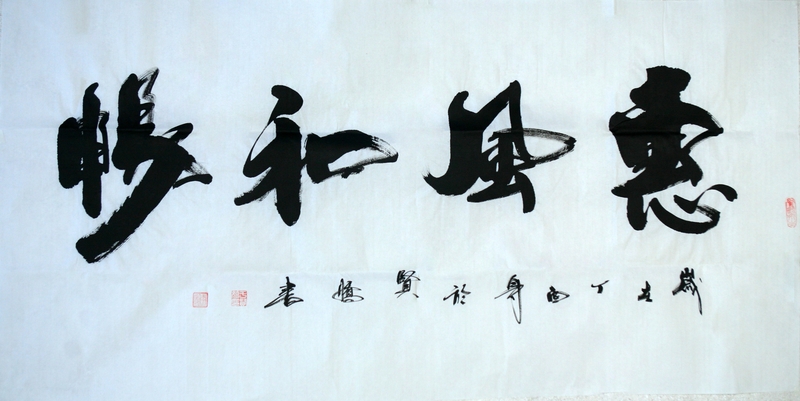 惠風和暢
歲在丁酉身於賢書